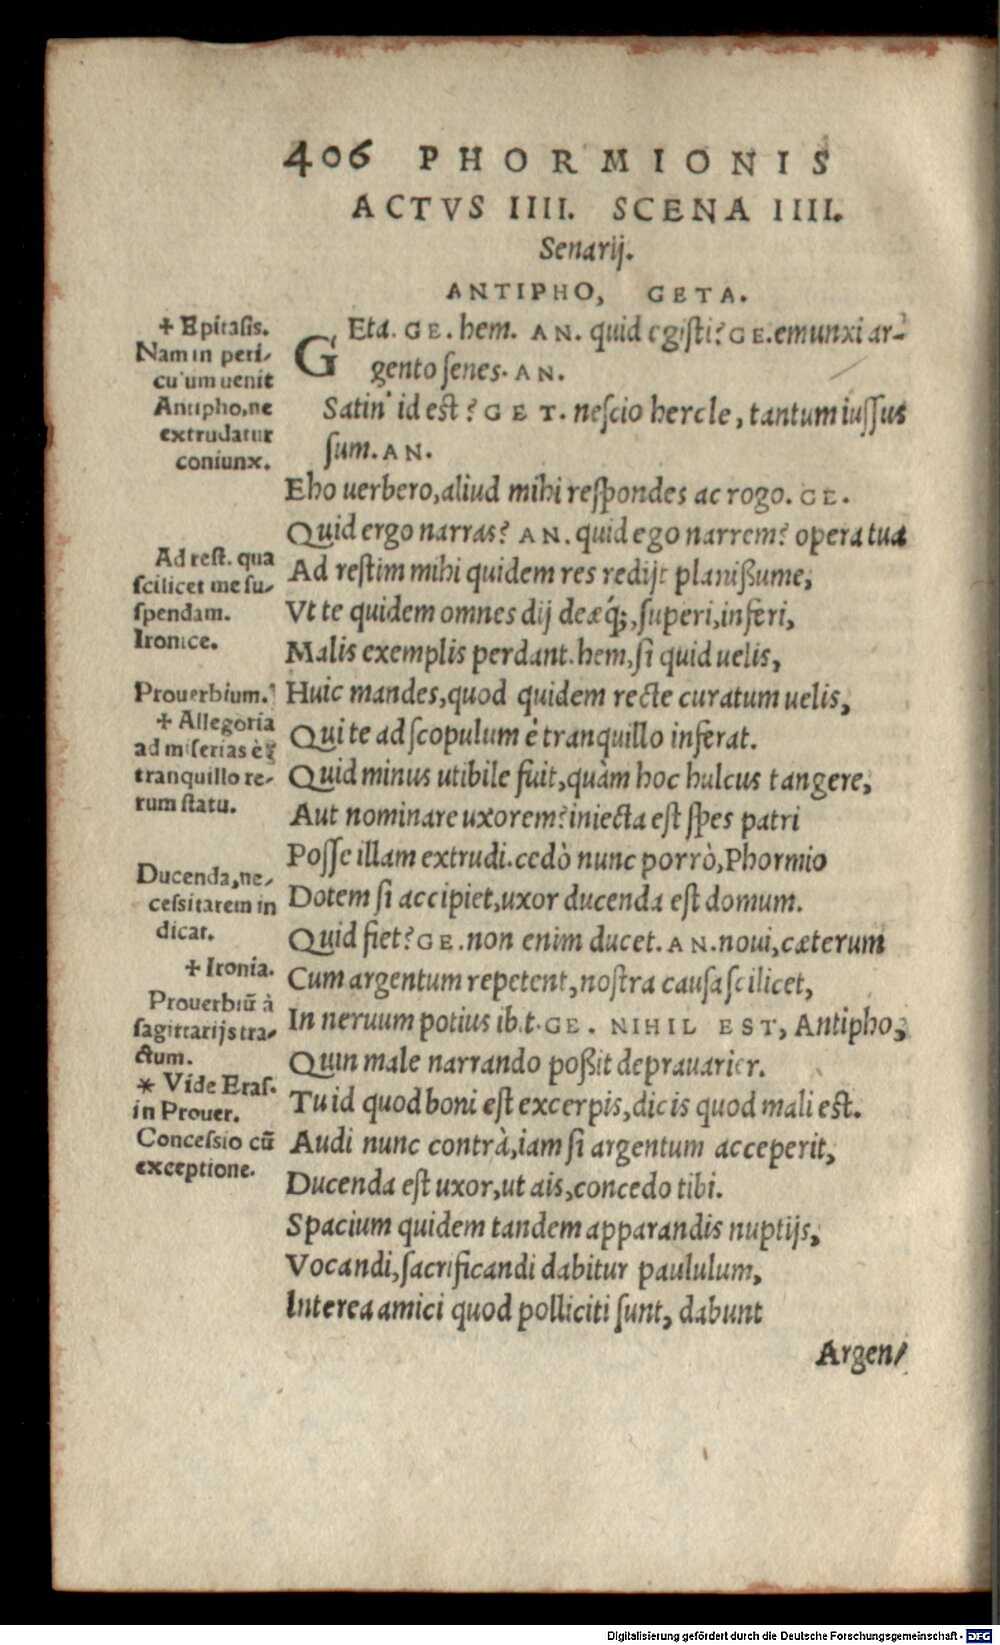 406 PHORMIONIS
ACTVS IIII. SCENA IIII.
Senarij.
ANTIPHO, GETA.
GEta. GE. hem. AN. quid egisti? GE. emunxi ar-
gento senes. AN.
Satin' id est? GET. nescio hercle, tantum iussus
sum. AN.
Eho uerbero, aliud mihi respondes ac rogo. GE.
Quid ergo narras? AN. quid ego narrem? opera tua
Ad restim mihi quidem res redijt planißume,
Vt te quidem omnes dij deæq́;, superi, inferi,
Malis exemplis perdant. hem, si quid uelis,
Huic mandes, quod quidem recte curatum uelis,
Qui te ad scopulum è tranquillo inferat.
Quid minus utibile fuit, quàm hoc hulcus tangere,
Aut nominare uxorem? iniecta est spes patri
Posse illam extrudi. cedò nunc porrò, Phormio
Dotem si accipiet, uxor ducenda est domum.
Quid fiet? GE. non enim ducet. AN. noui, cæterum
Cum argentum repetent, nostra causa scilicet,
In neruum potius ibit. GE. NIHIL EST, Antipho,
Quin male narrando poßit deprauarier.
Tu id quod boni est excerpis, dicis quod mali est.
Audi nunc contrà, iam si argentum acceperit,
Ducenda est uxor, ut ais, concedo tibi.
Spacium quidem tandem apparandis nuptijs,
Vocandi, sacrificandi dabitur paululum,
Interea amici quod polliciti sunt, dabunt
Argen-
+ Epitasis.
Nam in peri-
culum uenit
Antipho, ne
extrudatur
coniunx.
Ad rest. qua
scilicet me su-
spendam.
Ironice.
Prouerbium.
+ Allegoria
ad miserias è
tranquillo re-
rum statu.
Ducenda, ne-
cessitatem in
dicat.
+ Ironia.
Prouerbiū à
sagittarijs tra-
ctum.
* Vide Eras.
in Prouer.
Concessio cū
exceptione.
Digitalisierung gefördert durch die Deutsche Forschungsgemeinschaft - DFG